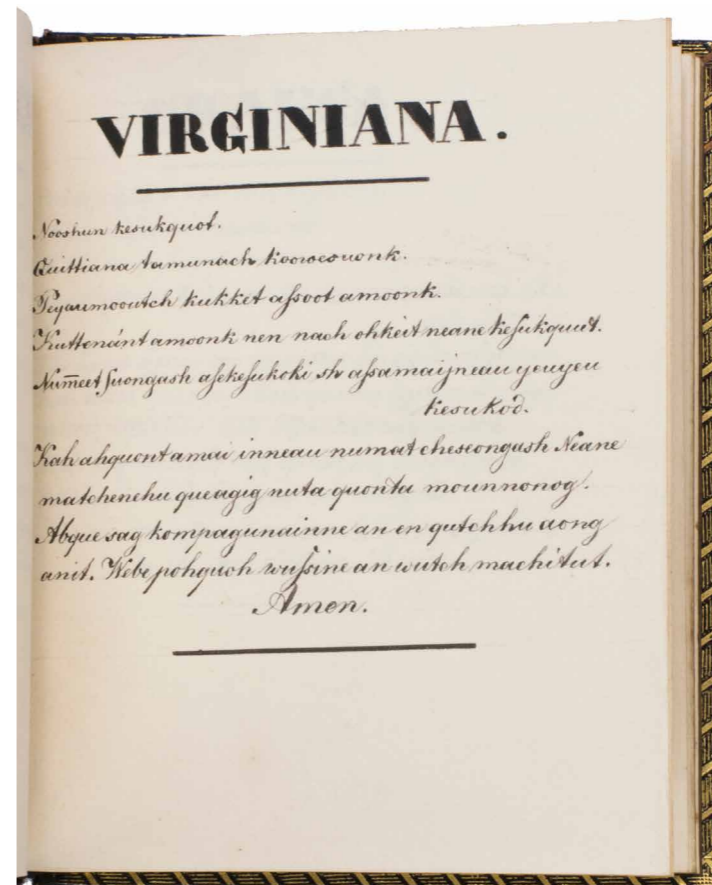 VIRGINIANA.
Nooshun kesukquot.
Quittiana tamunach koowesuonk.
Peyaumooutch kukket aſsoot amoonk.
Kuttenánt amoonk nen nach ohkeit neane keſukquut.
Num̄eet ſuongash aſekeſukoki sh aſsamaijneau yeuyeu
kesukod.
Kah ahquontamui inneau numat cheseongash Neane
matchenehu queagig nuta quonta mounnonog.
Abque sag kompagunainne an en qutchhu aong
anit. Webe pohquoh wuſsine an wutch machitut.
Amen.